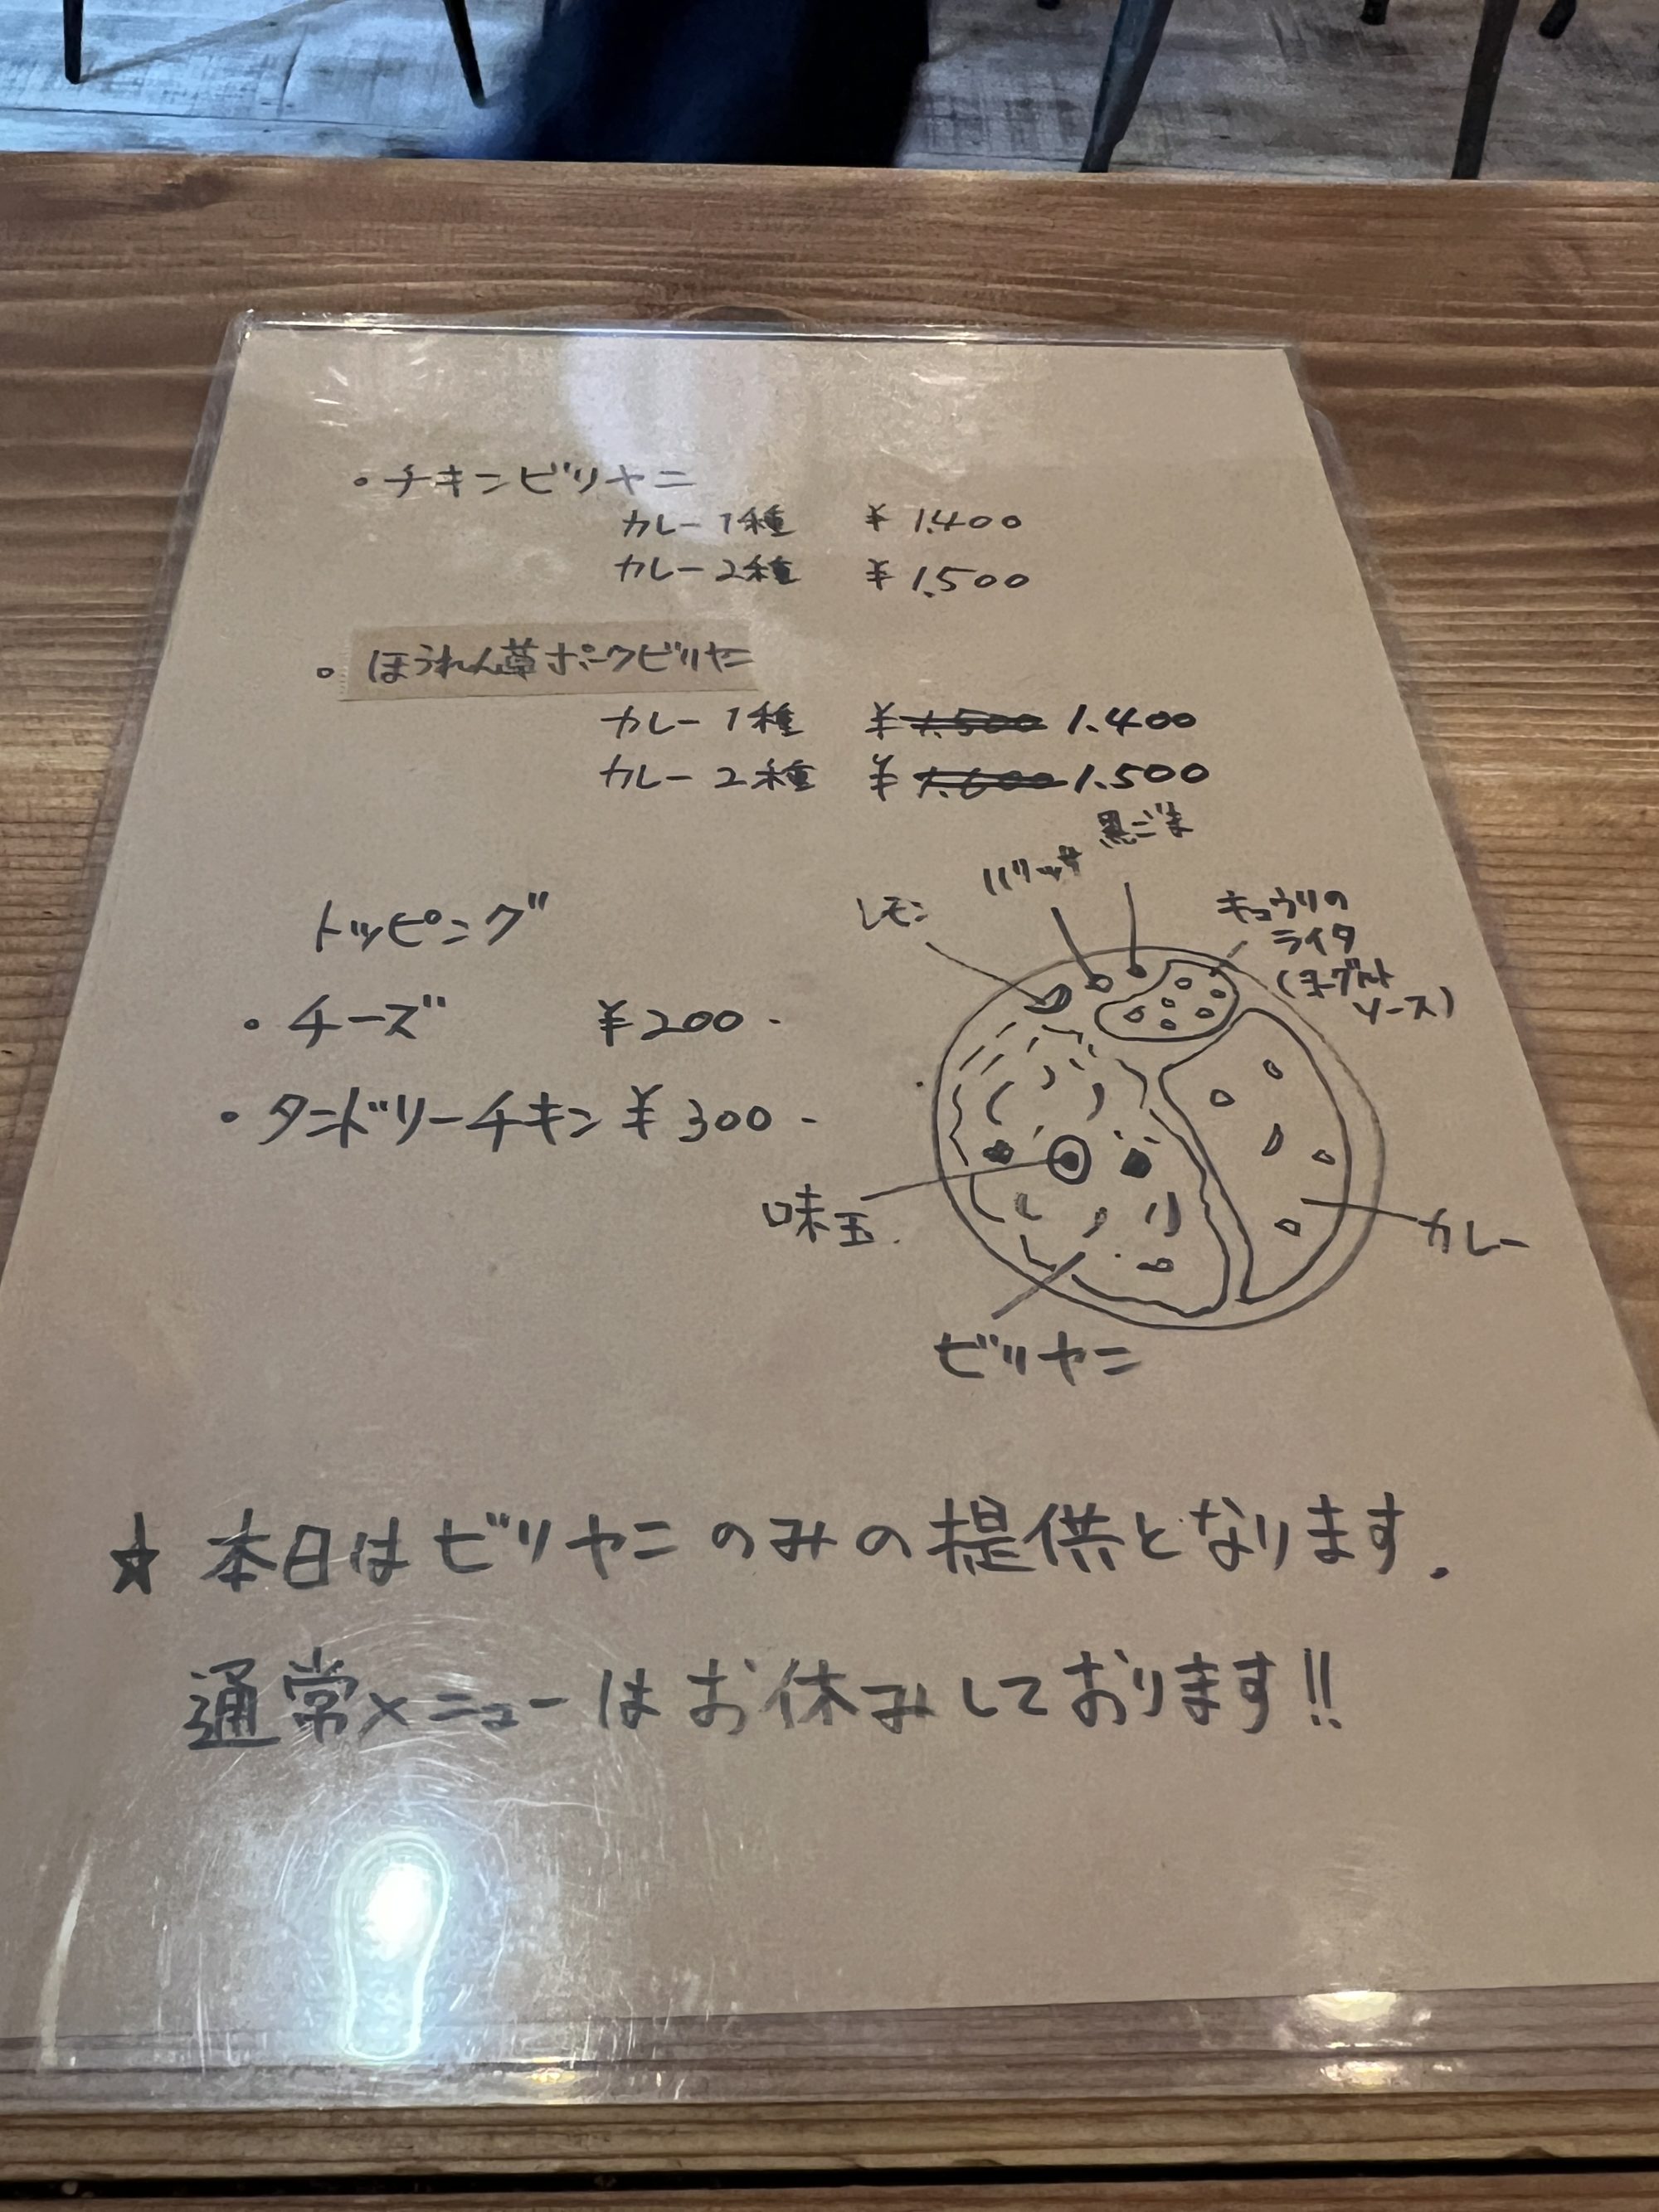 ・チキンビリヤニ
カレー1種 ¥1.400
カレー2種 ¥1.500
・ほうれん草ポークビリヤニ
カレー1種 ¥1.500 1.400
カレー2種 ¥1.600 1.500
黒ごま
レモン
キュウリの
ライタ
(ヨーグルト
ソース)
トッピング
・チーズ ¥200-
・タンドリーチキン ¥300-
味玉
カレー
ビリヤニ
☆本日はビリヤニのみの提供となります.
通常メニューはお休みしております!!